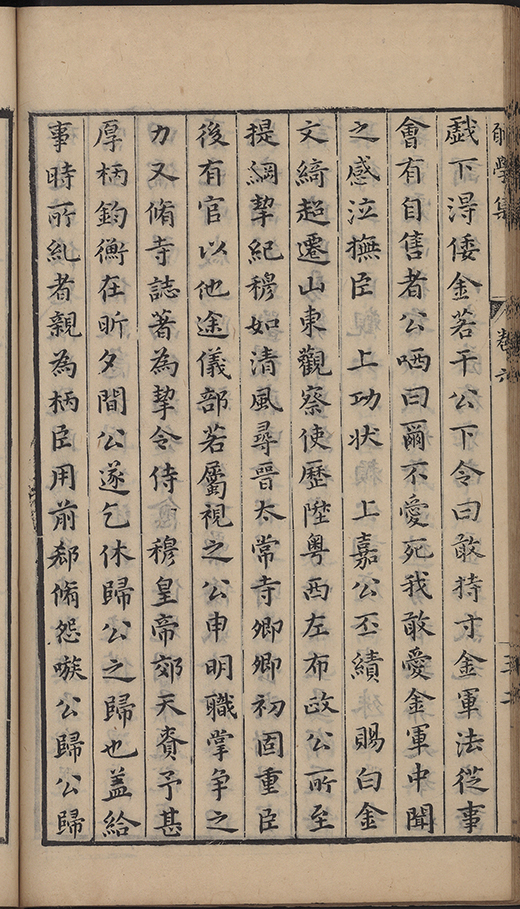 學集 卷六
戲下淂倭金若干公下令曰敢持寸金軍法從事
會有自售者公哂曰爾不愛死我敢愛金軍中聞
之感泣撫臣 上功狀 上嘉公丕績 賜白金
文綺超遷山東觀察使歷陞粤西左布政公所至
提綱挈紀穆如清風尋晋太常寺卿卿初固重臣
後有官以他途儀部若屬視之公申明職掌争之
力又脩寺誌著為挈令侍 穆皇帝郊天賚予甚
厚柄鈞衡在昕夕間公遂乞休歸公之歸也盖給
事時所糺者親為柄臣用前郄脩怨嗾公歸公歸